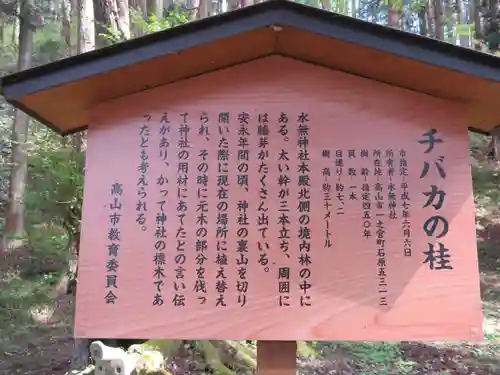 チバカの桂
市指定・平成七年六月六日
所有者・水無神社
所在地・高山市一之宮町石原五三一三
樹齢・指定四五〇年
員数・一本
目通り・約七、二
樹高・約三十メートル
水無神社本殿北側の境内林の中に
ある。太い幹が三本立ち、周囲に
は勝芽がたくさん出ている。
安永年間の頃、神社の裏山を切り
開いた際に現在の場所に植え替え
られ、その時に元木の部分を伐っ
て神社の用材にあてたとの言い伝
えがあり、かつて神社の標木であ
ったとも考えられる。
高山市教育委員会